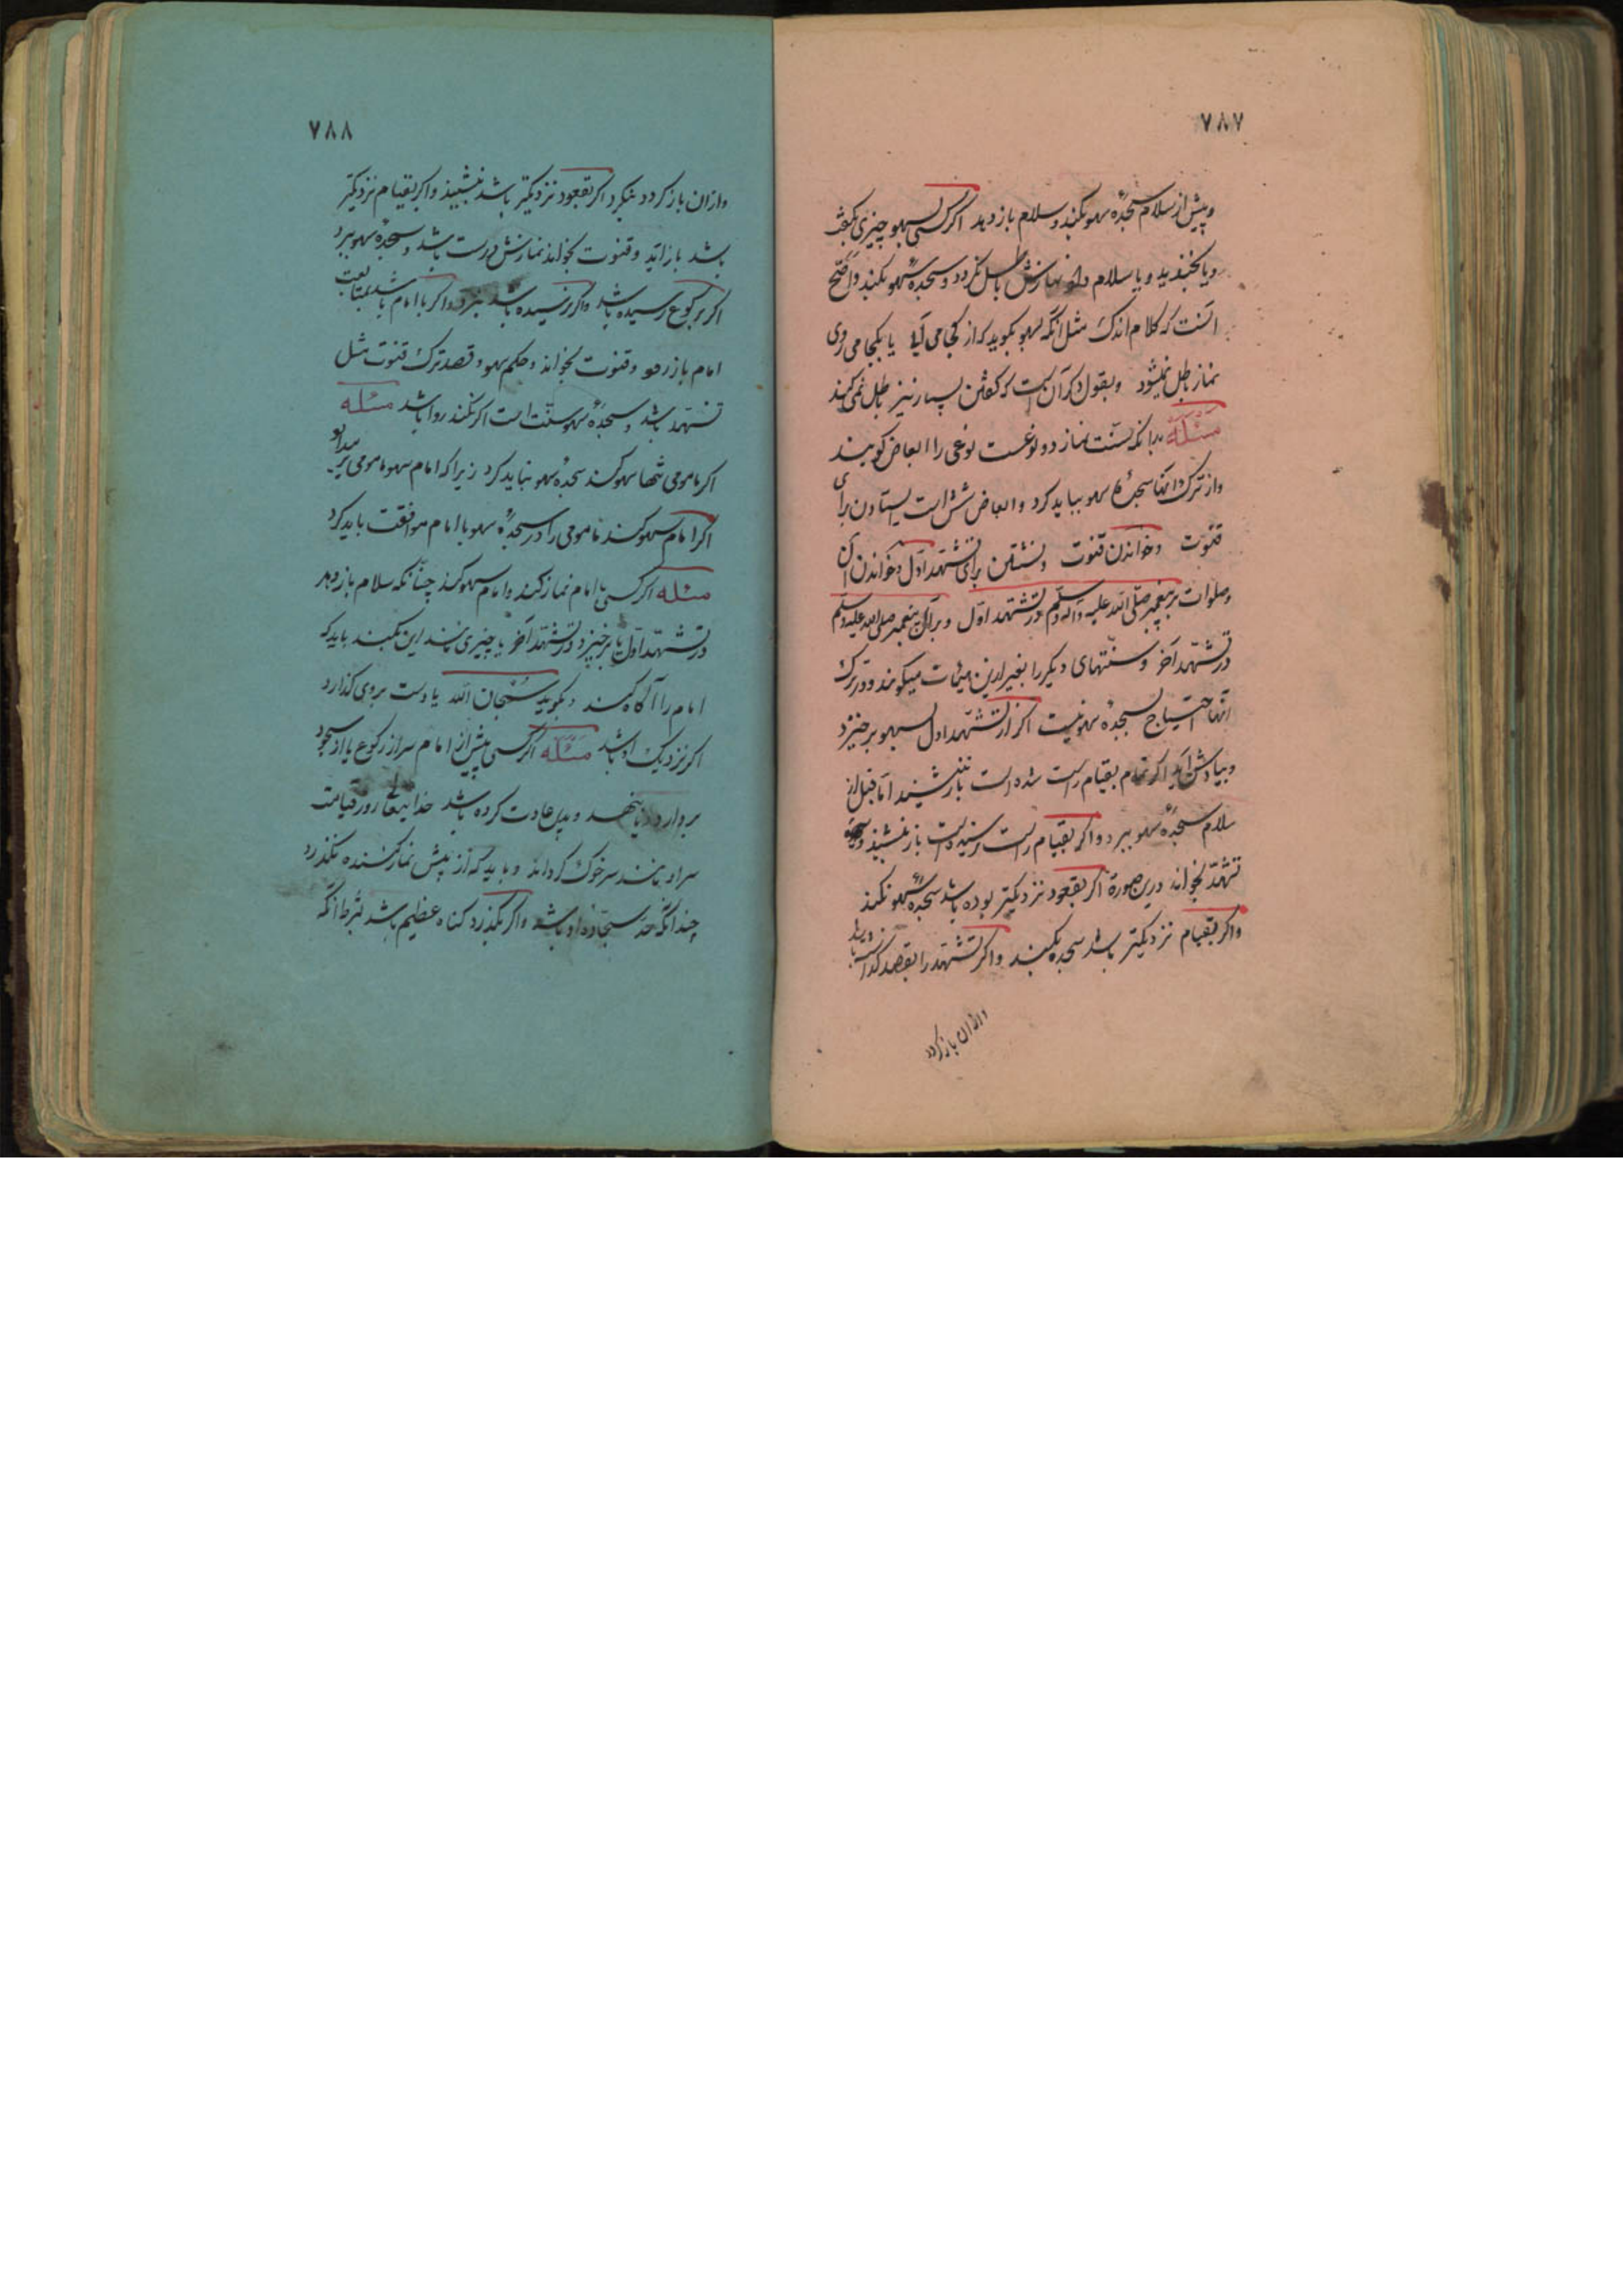 ٧٨٧
وپیش از سلام سجدهٔ سهو بکند و سلام باز دهد اگر کسی بسهو چیزی بگفت
ویا بخندید ویا سلام داد نمازش باطل نگردد و سجدهٔ سهو بکند واصح
آنست که کلام اندک مثل آنکه بسهو بگوید که از کجا می آیٔ یا بکجا می روی
نماز باطل نمیشود وبقول دیگر آن است که گفتن بسیار نیز باطل نمی کند
مسئله بدانکه سنت نماز دو نوعست نوعی را ابعاض گویند
واز ترک آنها سجدهٔ سهو بباید کرد وابعاض شش است ایستادن برای
قنوت وخواندن قنوت ونشستن برای تشهد اول وخواندن آن
وصلوات بر پیغمبر صلی الله علیه وآله وسلم در تشهد اول وبر آل پیغمبر صلی الله علیه وسلم
در تشهد آخر وسنتهای دیگر را بغیر ازین هیٔات میگویند ودر ترک
آنها احتیاج بسجدهٔ سهو نیست اگر از تشهد اول بسهو برخیزد
وبیادش آید اگر تمام بقیام راست شده است باز ننشیند اما قبل از
سلام سجدهٔ سهو ببرد واگر بقیام راست نرسیده است باز بنشیند و
تشهد بخواند درین صورة اگر بقعود نزدیکتر بوده باشد سجدهٔ سهو نکند
واگر بقیام نزدیکتر باشد سجده بکند واگر تشهد را بقصد گذاشته باشد
وازان باز گردد
٧٨٨
وازان باز گردد بنگرد اگر بقعود نزدیکتر باشد بنشیند واگر بقیام نزدیکتر
باشد باز آید وقنوت بخواند نمازش درست باشد وسجدهٔ سهو ببرد
اگر برکوع رسیده باشد واگر نرسیده باشد نبرد واگر با امام باشد بمتابعت
امام باز رود وقنوت بخواند وحکم سهو وقصد ترک قنوت مثل
تشهد باشد وسجدهٔ سهو سنّت است اگر نکند روا باشد مسئله
اگر ماموم تنها سهو کند سجدهٔ سهو نباید کرد زیرا که امام سهو ماموم بر
اگر امام سهو کند ماموم را در سجدهٔ سهو با امام موافقت باید کرد
مسئله اگر کسی با امام نماز کند وامام سهو کند چنانکه سلام باز دهد
در تشهد اول یا برخیزد در تشهد آخر یا چیزی مانند این بکند باید که
امام را آگاه کند وبگوید سُبْحان الله یا دست بروی گذارد
اگر نزدیک او باشد مسئله اگر کسی پیش از امام سر از رکوع یا از سجود
بردارد یا بنهد وبدین عادت کرده باشد خدایتعالی روز قیامت
سر او مانند سر خوک گرداند وباید که از پیش نماز کننده نگذرد
چندانکه حد سجادهٔ او باشد واگر بگذرد گناه عظیم باشد بشرط آنکه